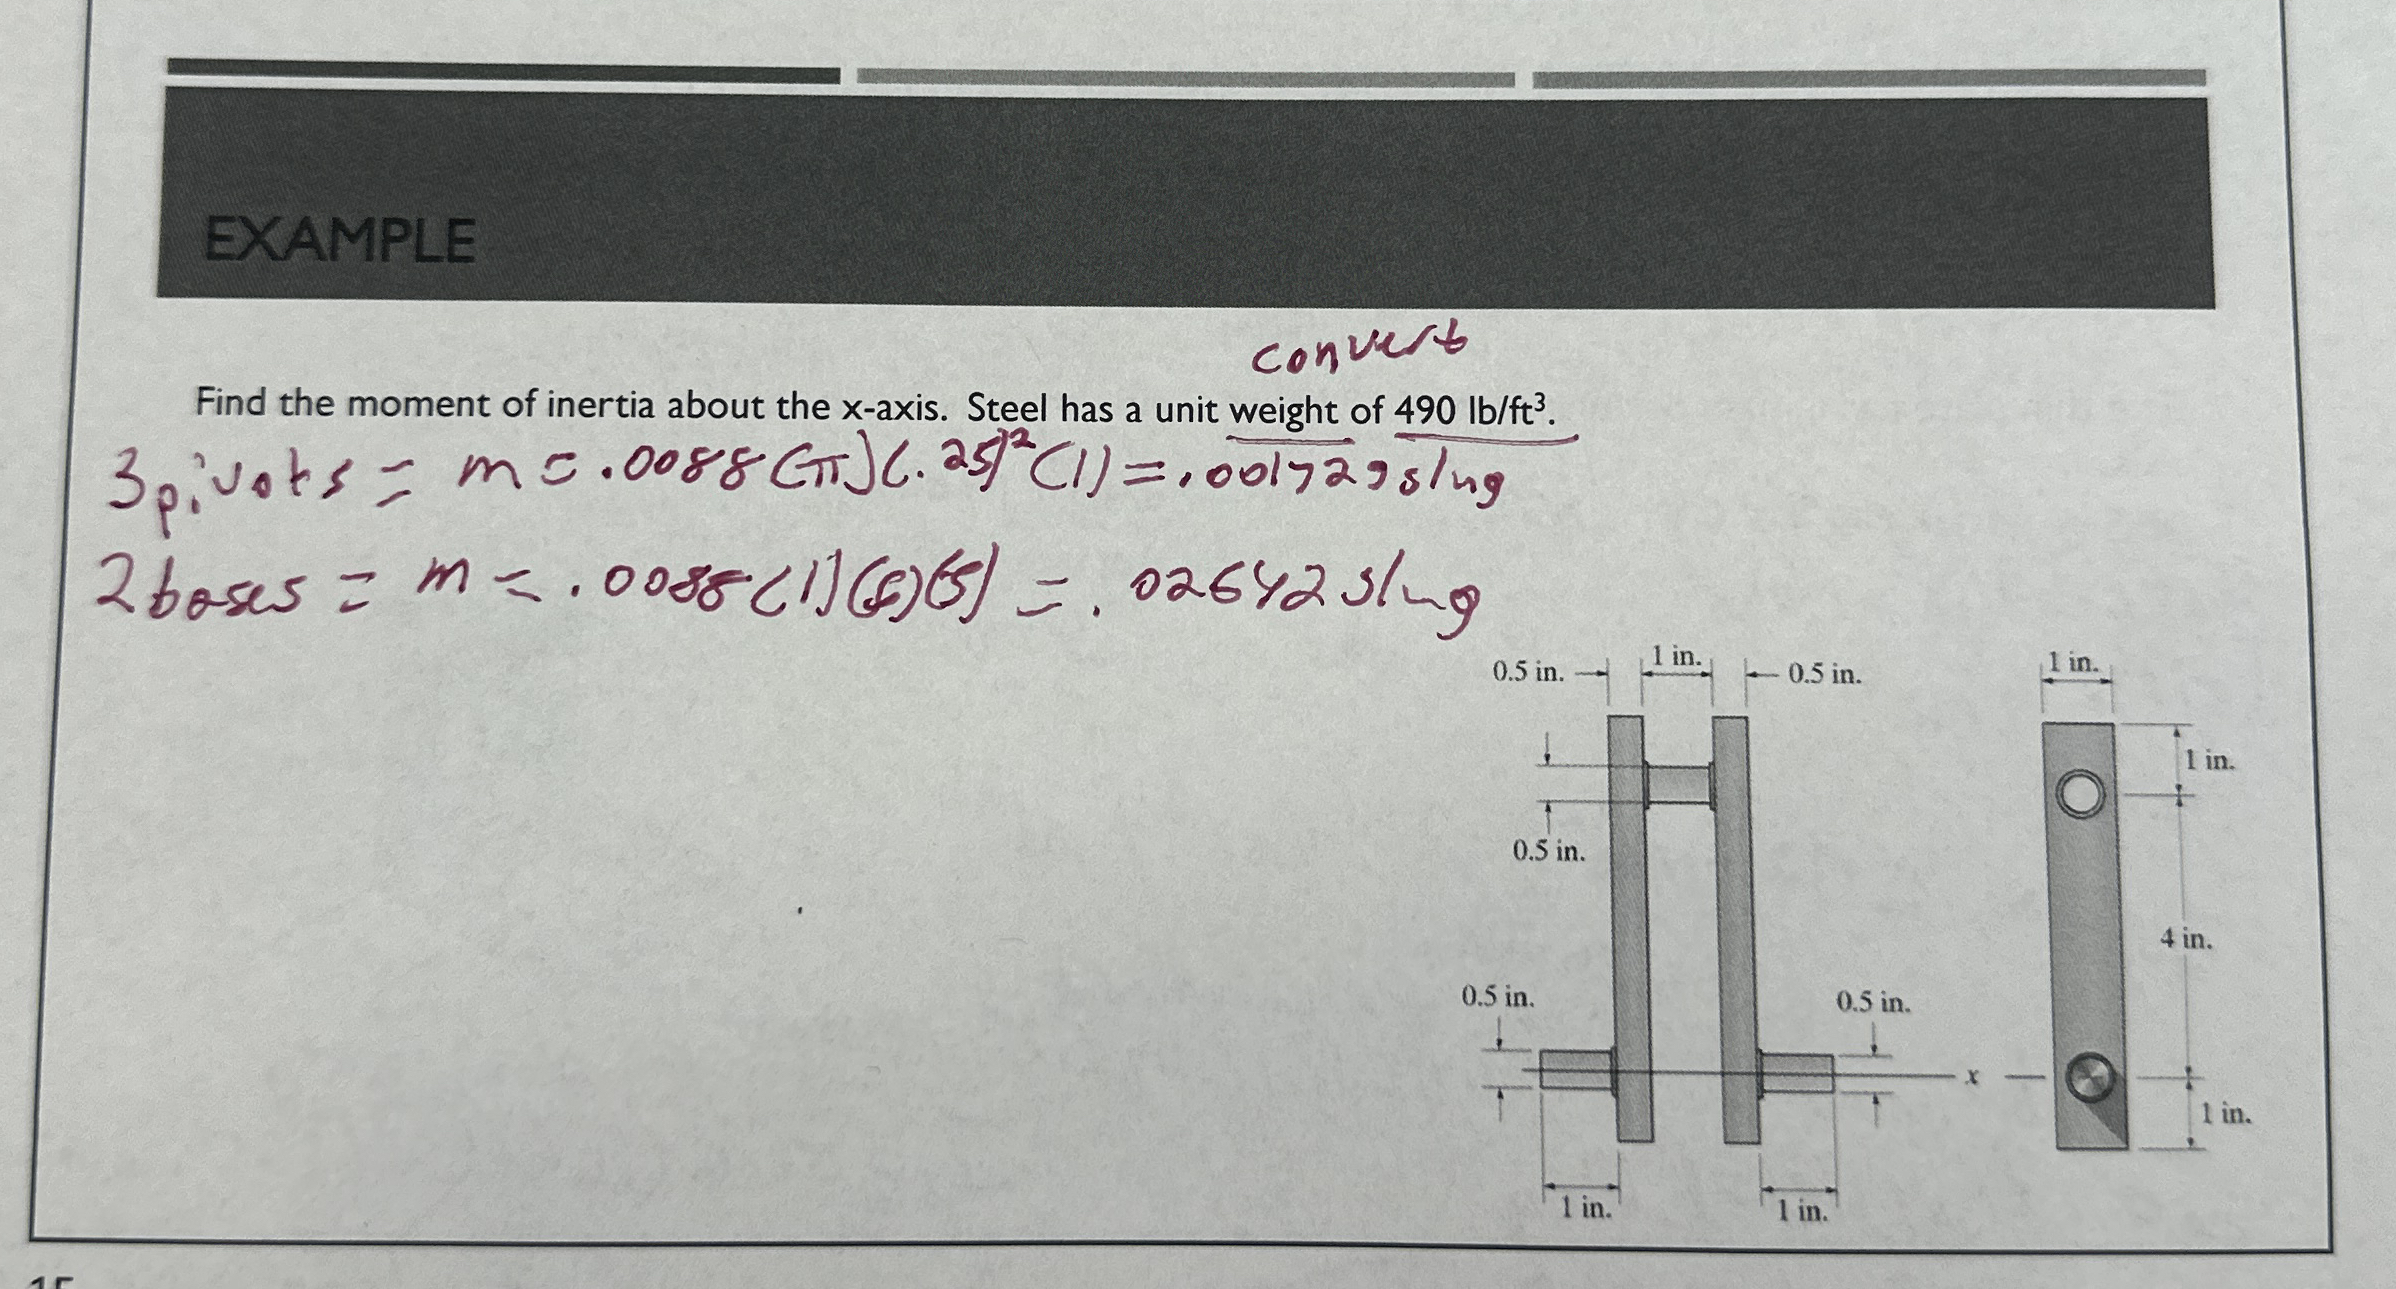 EXAMPLE
convert
Find the moment of inertia about the x-axis. Steel has a unit weight of 490 lb/ft³.
3 pivots = m = .0088 (π)(.25)² (1) = .001729 slug
2 bases = m = .0088 (1)(6)(.5) = .02642 slug
0.5 in. 1 in. 0.5 in. 1 in.
1 in.
0.5 in.
4 in.
0.5 in. 0.5 in.
x
1 in.
1 in. 1 in.